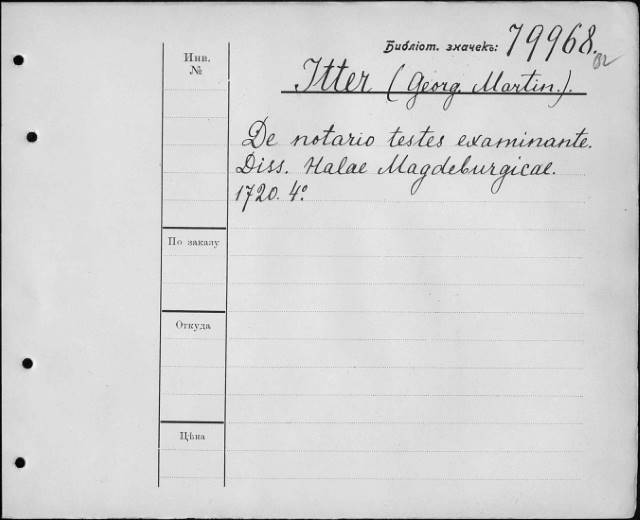 Библіот. значекъ: 79968.
Инв.
№
Itter (Georg. Martin.).
De notario testes examinante.
Diss. Halae Magdeburgicae.
1720. 4º
По заказу
Откуда
Цѣна